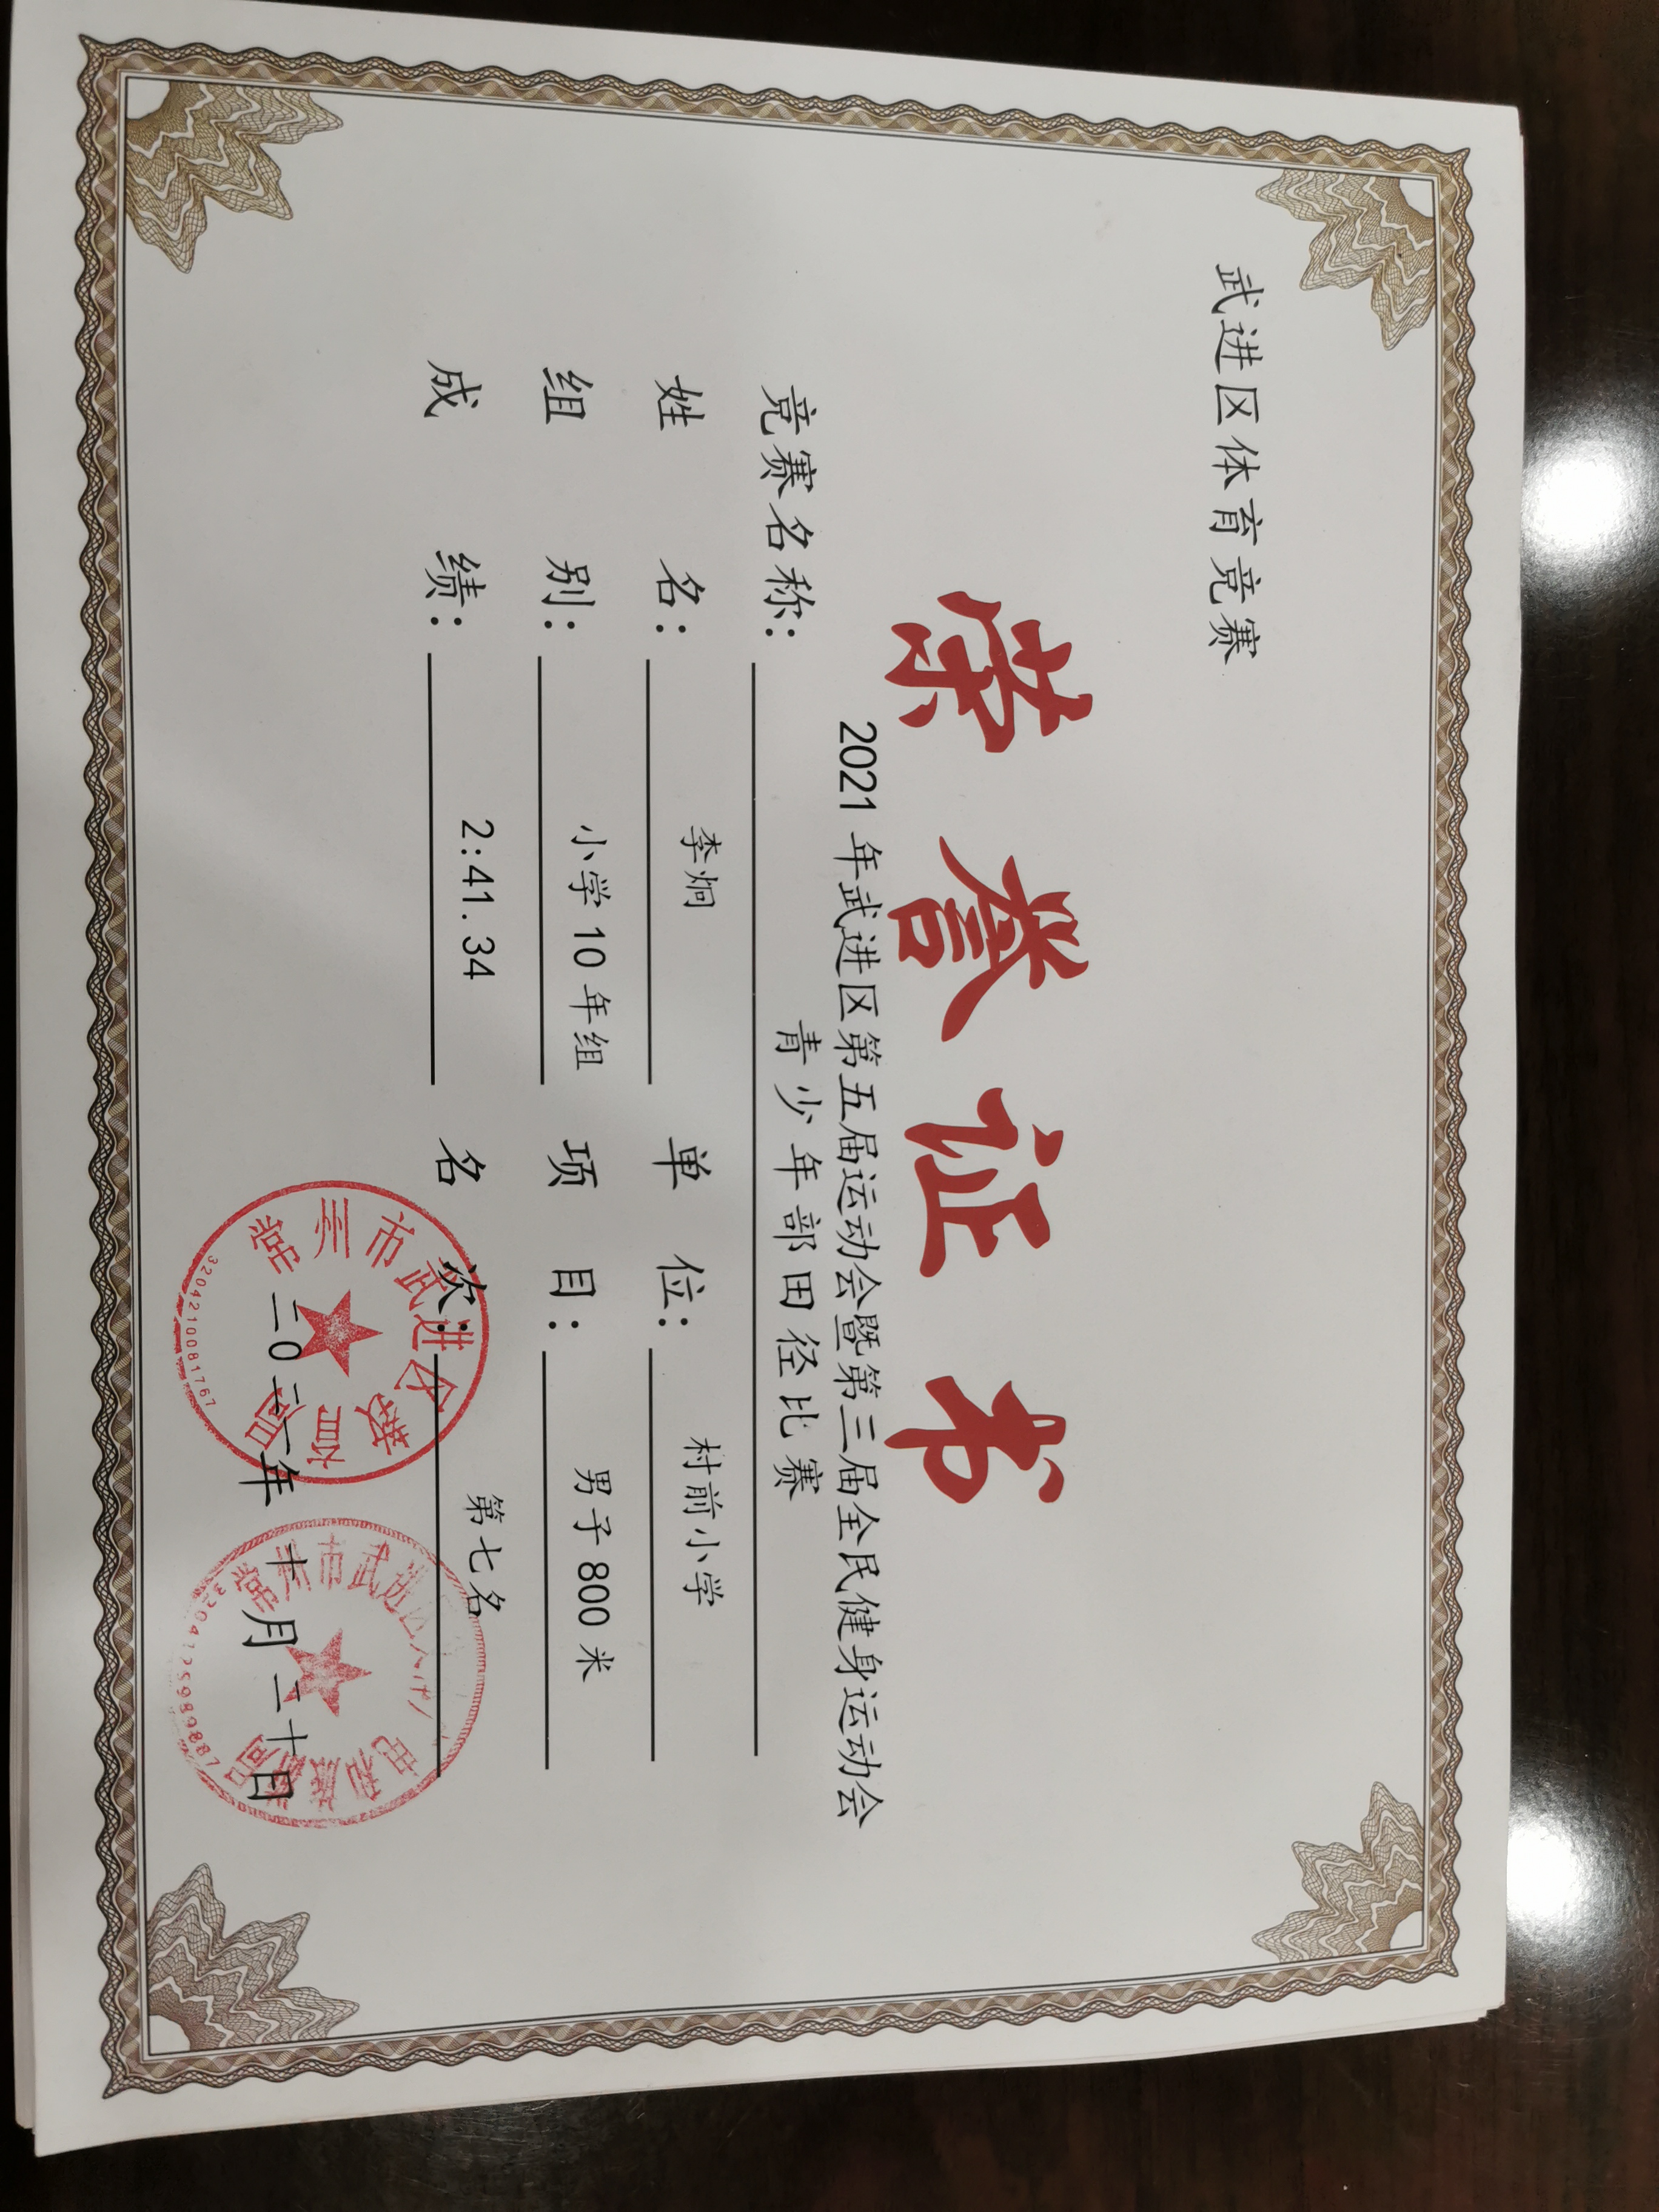 武进区体育竞赛
荣誉证书
2021年武进区第五届运动会暨第三届全民健身运动会
竞赛名称：青少年部田径比赛
姓名：李炯 单位：村前小学
组别：小学10年组 项目：男子800米
成绩：2:41.34 名次：第七名
二〇二一年十月二十日
常州市武进区教育局
3204210081767
常州市武进区